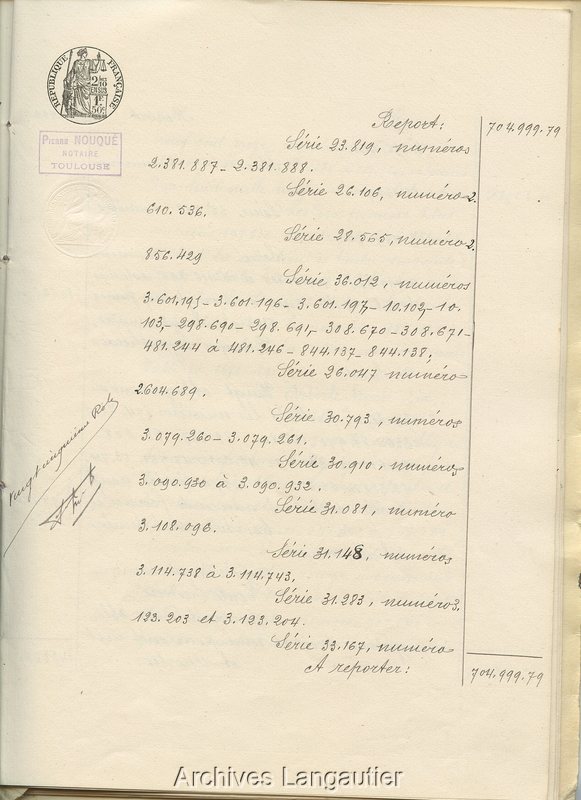 RÉPUBLIQUE FRANÇAISE
2/10 EN SUS
1F
50c
PIERRE NOUQUÉ
NOTAIRE
TOULOUSE
Report: 704.999.79
Série 23.819, numéros
2.381.887_ 2.381.888.
Série 26.106, numéro 2.
610.536.
Série 28.565, numéro 2.
856.429
Série 36.012, numéros
3.601.195_ 3.601.196_ 3.601.197_ 10.102_ 10
103_ 298.690_ 298.691_ 308.670_ 308.671_
481.244 à 481.246_ 844.137_ 844.138;
Série 26.047 numéro
2604.689.
Série 30.793, numéros
3.079.260_ 3.079.261.
Série 30.910, numéros
3.090.930 à 3.090.932.
Série 31.081, numéro
3.108.096.
Série 31.148, numéros
3.114.738 à 3.114.743.
Série 31.283, numéro 3.
123.203 et 3.123.204.
Série 33.167, numéro
A reporter: 704.999.79
Vingt cinquième Role
Archives Langautier